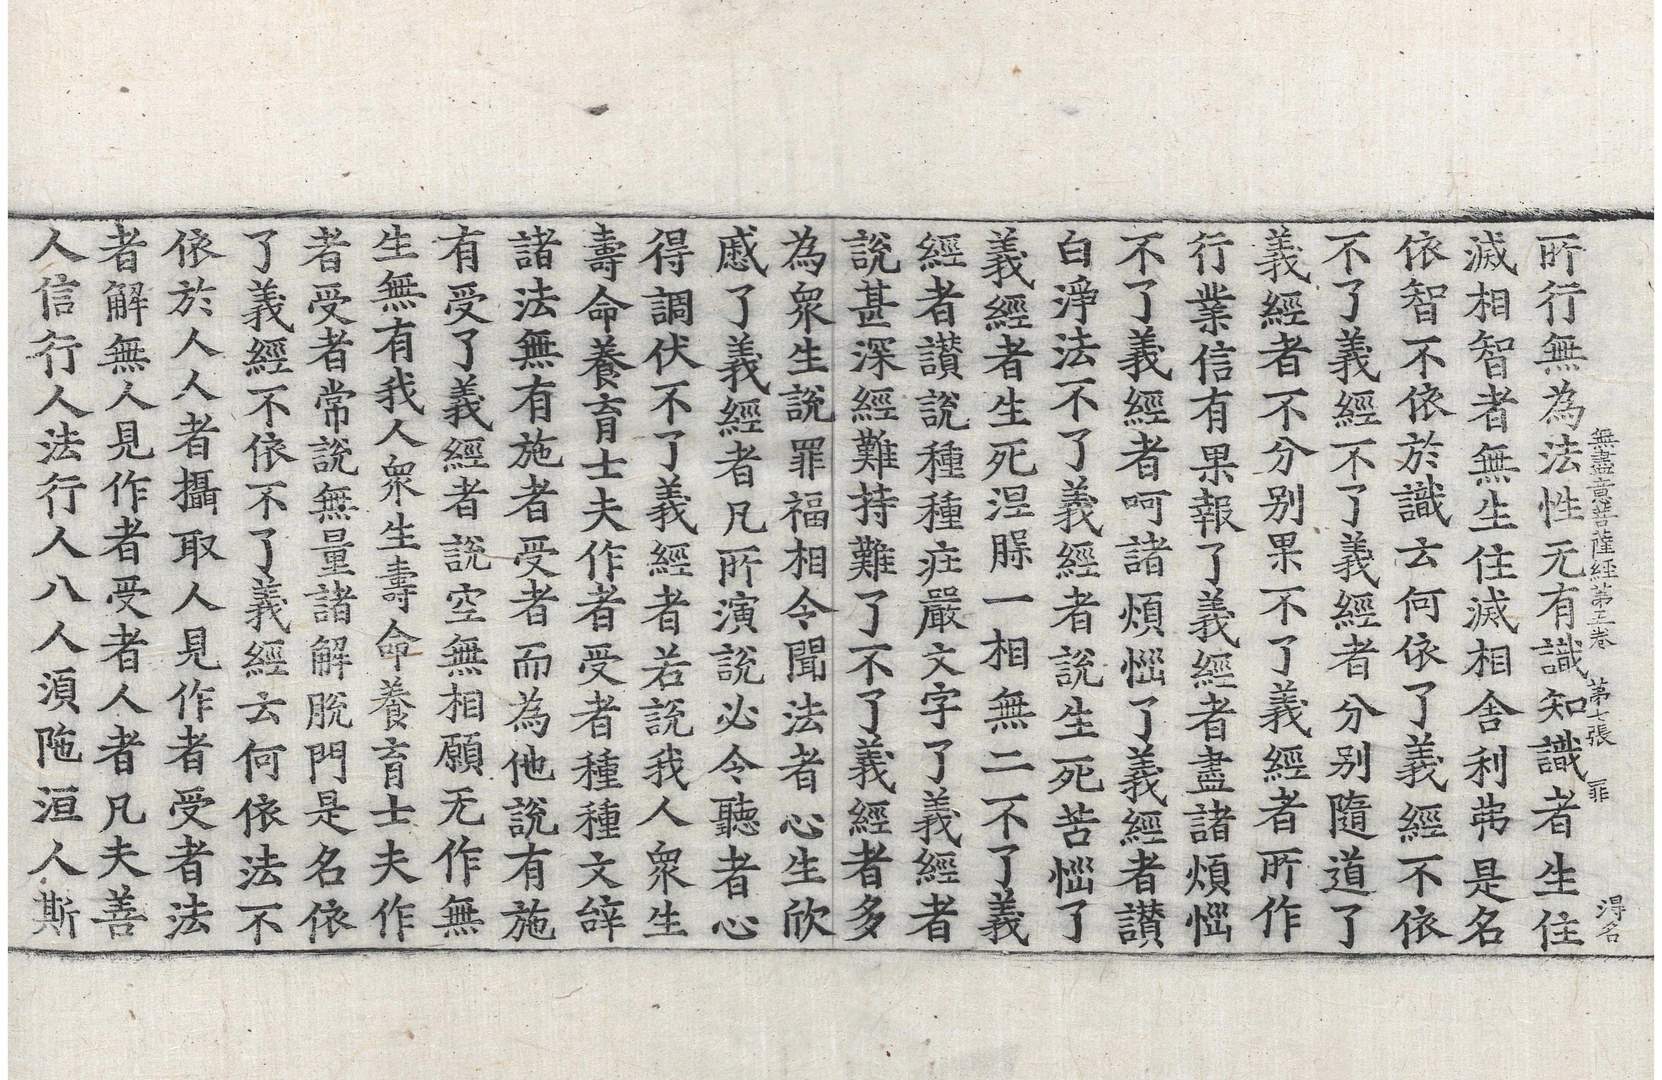 無盡意菩薩經第五卷 第七張 罪 淂名
所行無為法性无有識知識者生住
滅相智者無生住滅相舍利弗是名
依智不依於識云何依了義經不依
不了義經不了義經者分別隨道了
義經者不分別果不了義經者所作
行業信有果報了義經者盡諸煩惱
不了義經者呵諸煩惱了義經者讃
白淨法不了義經者說生死苦惱了
義經者生死涅槃一相無二不了義
經者讃說種種庄嚴文字了義經者
說甚深經難持難了不了義經者多
為衆生說罪福相令聞法者心生欣
慼了義經者凡所演說必令聽者心
得調伏不了義經者若說我人衆生
壽命養育士夫作者受者種種文辝
諸法無有施者受者而為他說有施
有受了義經者說空無相願无作無
生無有我人衆生壽命養育士夫作
者受者常說無量諸解脫門是名依
了義經不依不了義經云何依法不
依於人人者攝取人見作者受者法
者解無人見作者受者人者凡夫善
人信行人法行人八人湏陁洹人斯